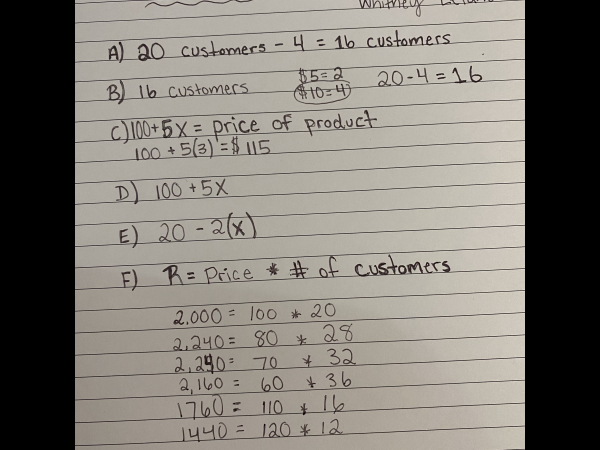 Whitney
A) 20 customers - 4 = 16 customers
B) 16 customers $5=2 20-4=16
$10=4
C) 100+5x = price of product
100 + 5(3) = $115
D) 100 + 5x
E) 20 - 2(x)
F) R = Price * # of customers
2,000 = 100 * 20
2,240 = 80 * 28
2,240 = 70 * 32
2,160 = 60 * 36
1760 = 110 * 16
1440 = 120 * 12